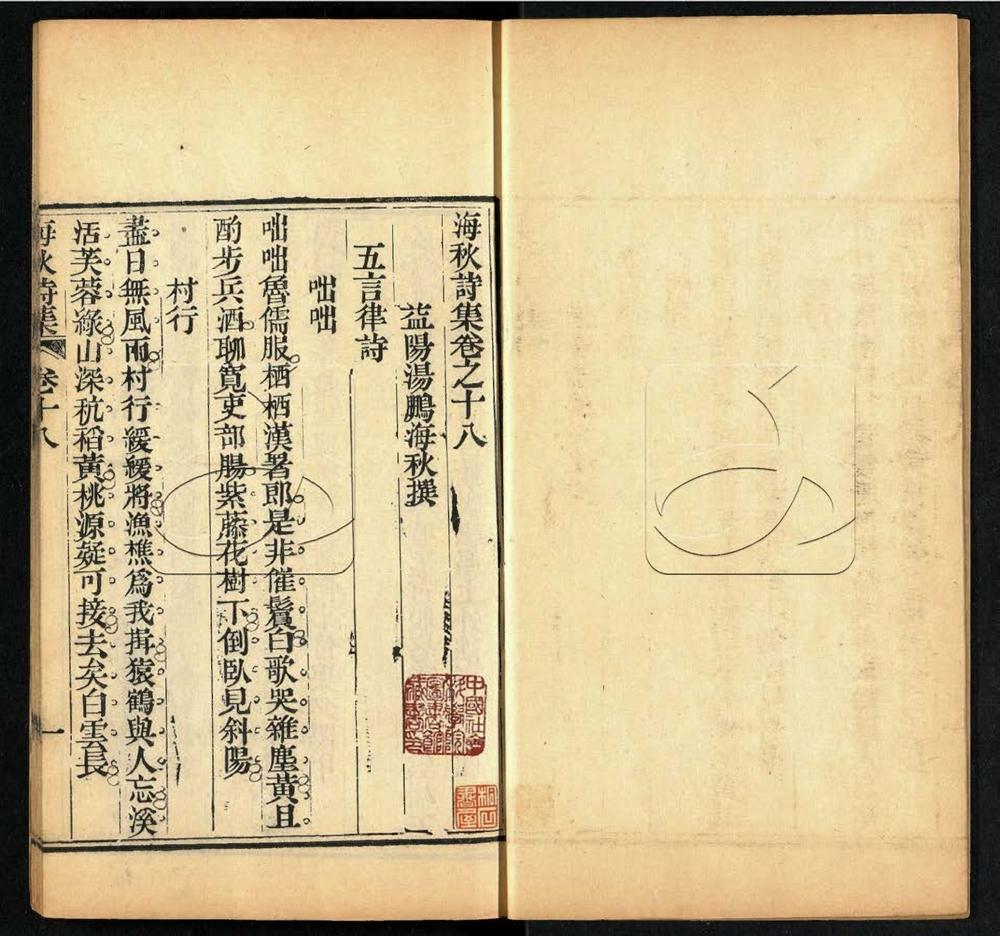 海秋詩集卷之十八
益陽湯鵬海秋撰
五言律詩
咄咄
咄咄魯儒服栖栖漢署郎是非催鬢白歌哭雜塵黃且
酌步兵酒聊寬吏部腸紫藤花樹下倒臥見斜陽
村行
盡日無風雨村行緩緩將漁樵爲我揖猿鶴與人忘溪
活芙蓉綠山深秔稻黃桃源疑可接去矣白雲長
海秋詩集
卷十八
一
中國社會科學院
圖書館
藏書印